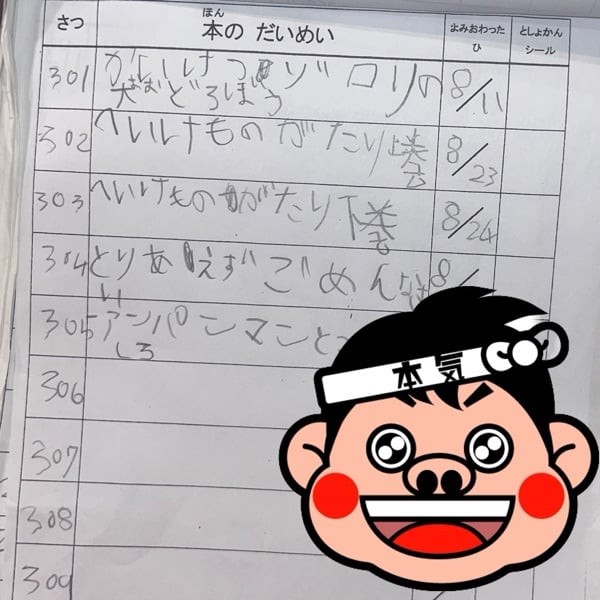 さつ 本の だいめい よみおわった ひ としょかん シール
ほん
301 かいけつゾロリの 8/11
大どろぼう
302 へいけものがたり上巻 8/23
303 へいけものがたり下巻 8/24
304 とりあえずごめんなさ 8/
い
305 アンパンマンと
しろ
306
307
308
309
本気